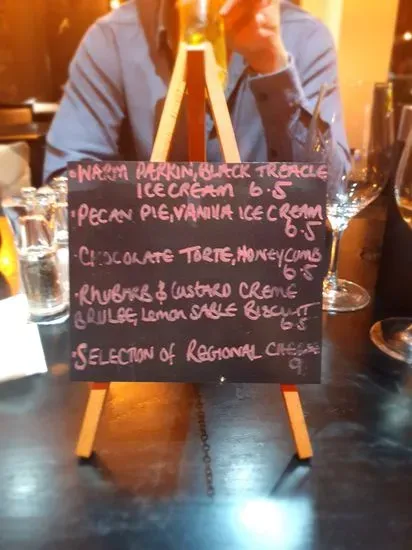 • WARM PARKIN, BLACK TREACLE
ICE CREAM 6.5
• PECAN PIE, VANILLA ICE CREAM
6.5
• CHOCOLATE TORTE, HONEYCOMB
6.5
• RHUBARB & CUSTARD CREME
BRULEE, LEMON SABLE BISCUIT
6.5
• SELECTION OF REGIONAL CHEESE
9.